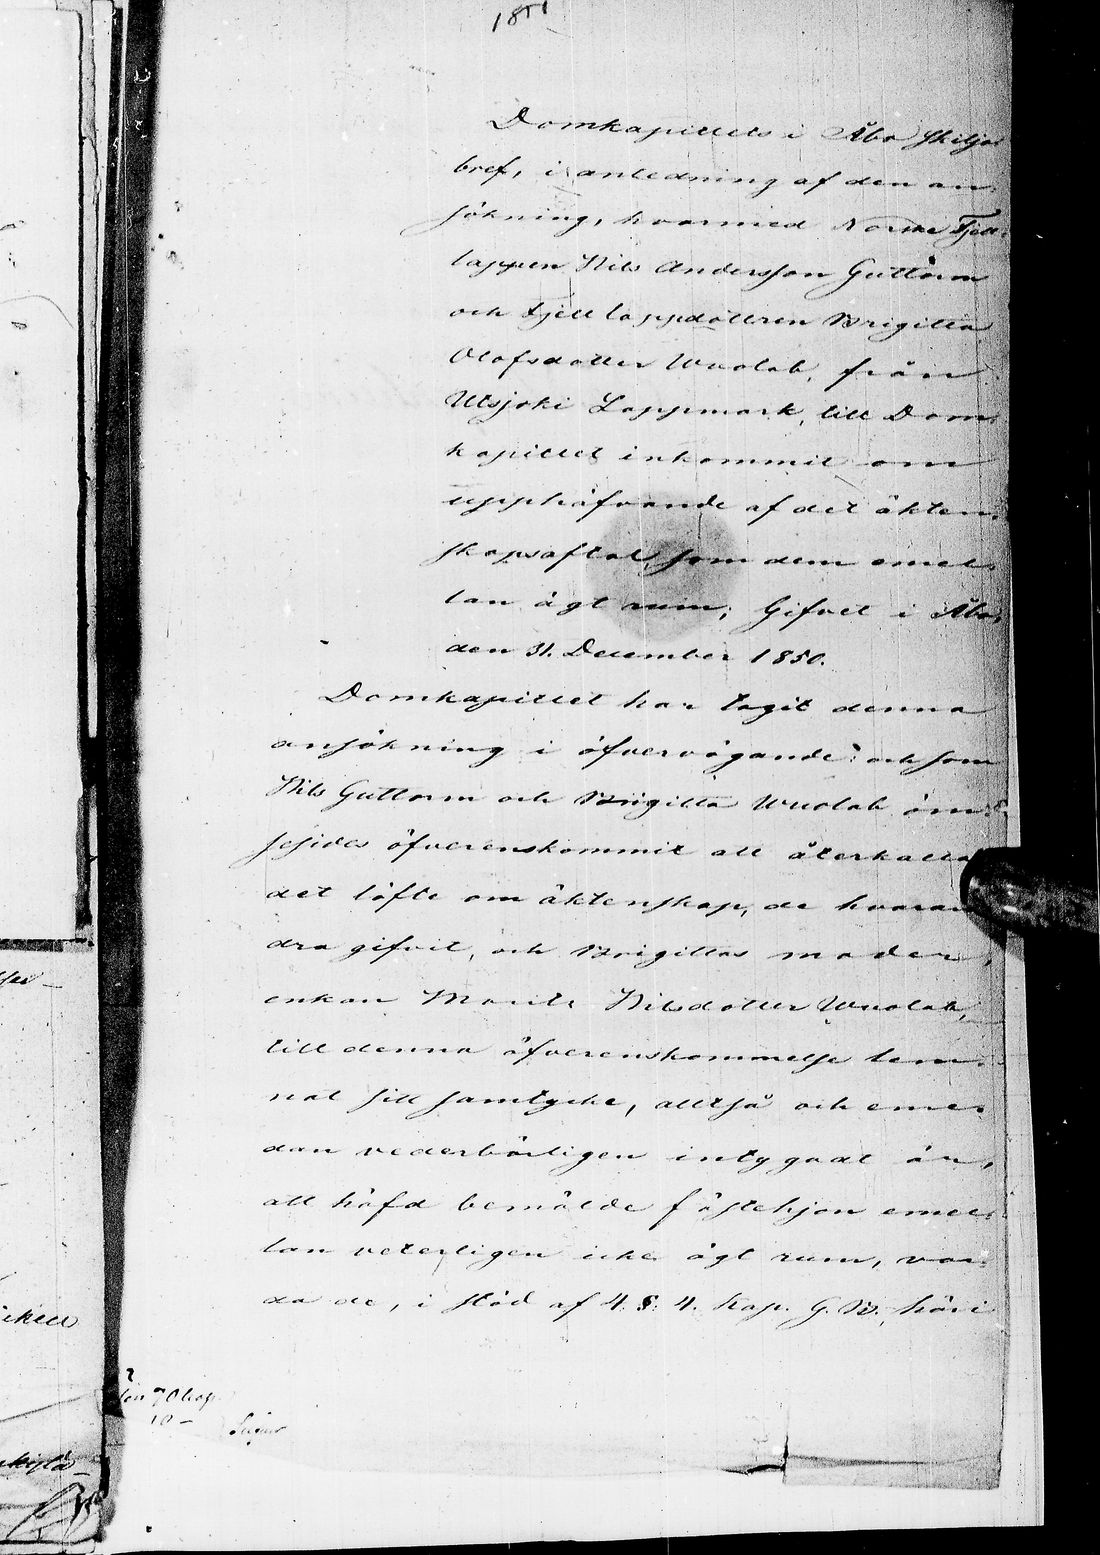 1851
Domkapitlets i Åbo skiljo
bref, i anledning af den an
sökning, hvarmed Norske Fjell
lappen Nils Andersson Guttorm
och Fjelllappdottren Brigitta
Olofsdotter Wuolab, från
Utsjoki Lappmark, till Dom
kapitlet inkommit om
upphäfvande af det äkten
skapsaftal, som dem emel
lan ägt rum; Gifvet i Åbo,
den 31. December 1850.
Domkapitlet har tagit denna
ansökning i öfvervägande: och som
Nils Guttorm och Brigitta Wuolab öm
sesides öfverenskommit att återkalla
det löfte om äktenskap, de hvaran
dra gifvit, och Brigittas moder,
enkan Marits Nilsdotter Wuolab,
till denna öfverenskommelse lem
nat sitt samtycke, alltså och eme
dan vederbörligen intygadt är,
att häfd bemälde fästehjon emel
lan veterligen icke ägt rum, var
da de, i stöd af 4. §. 4. Kap. G. B. häri
ikell
10 —